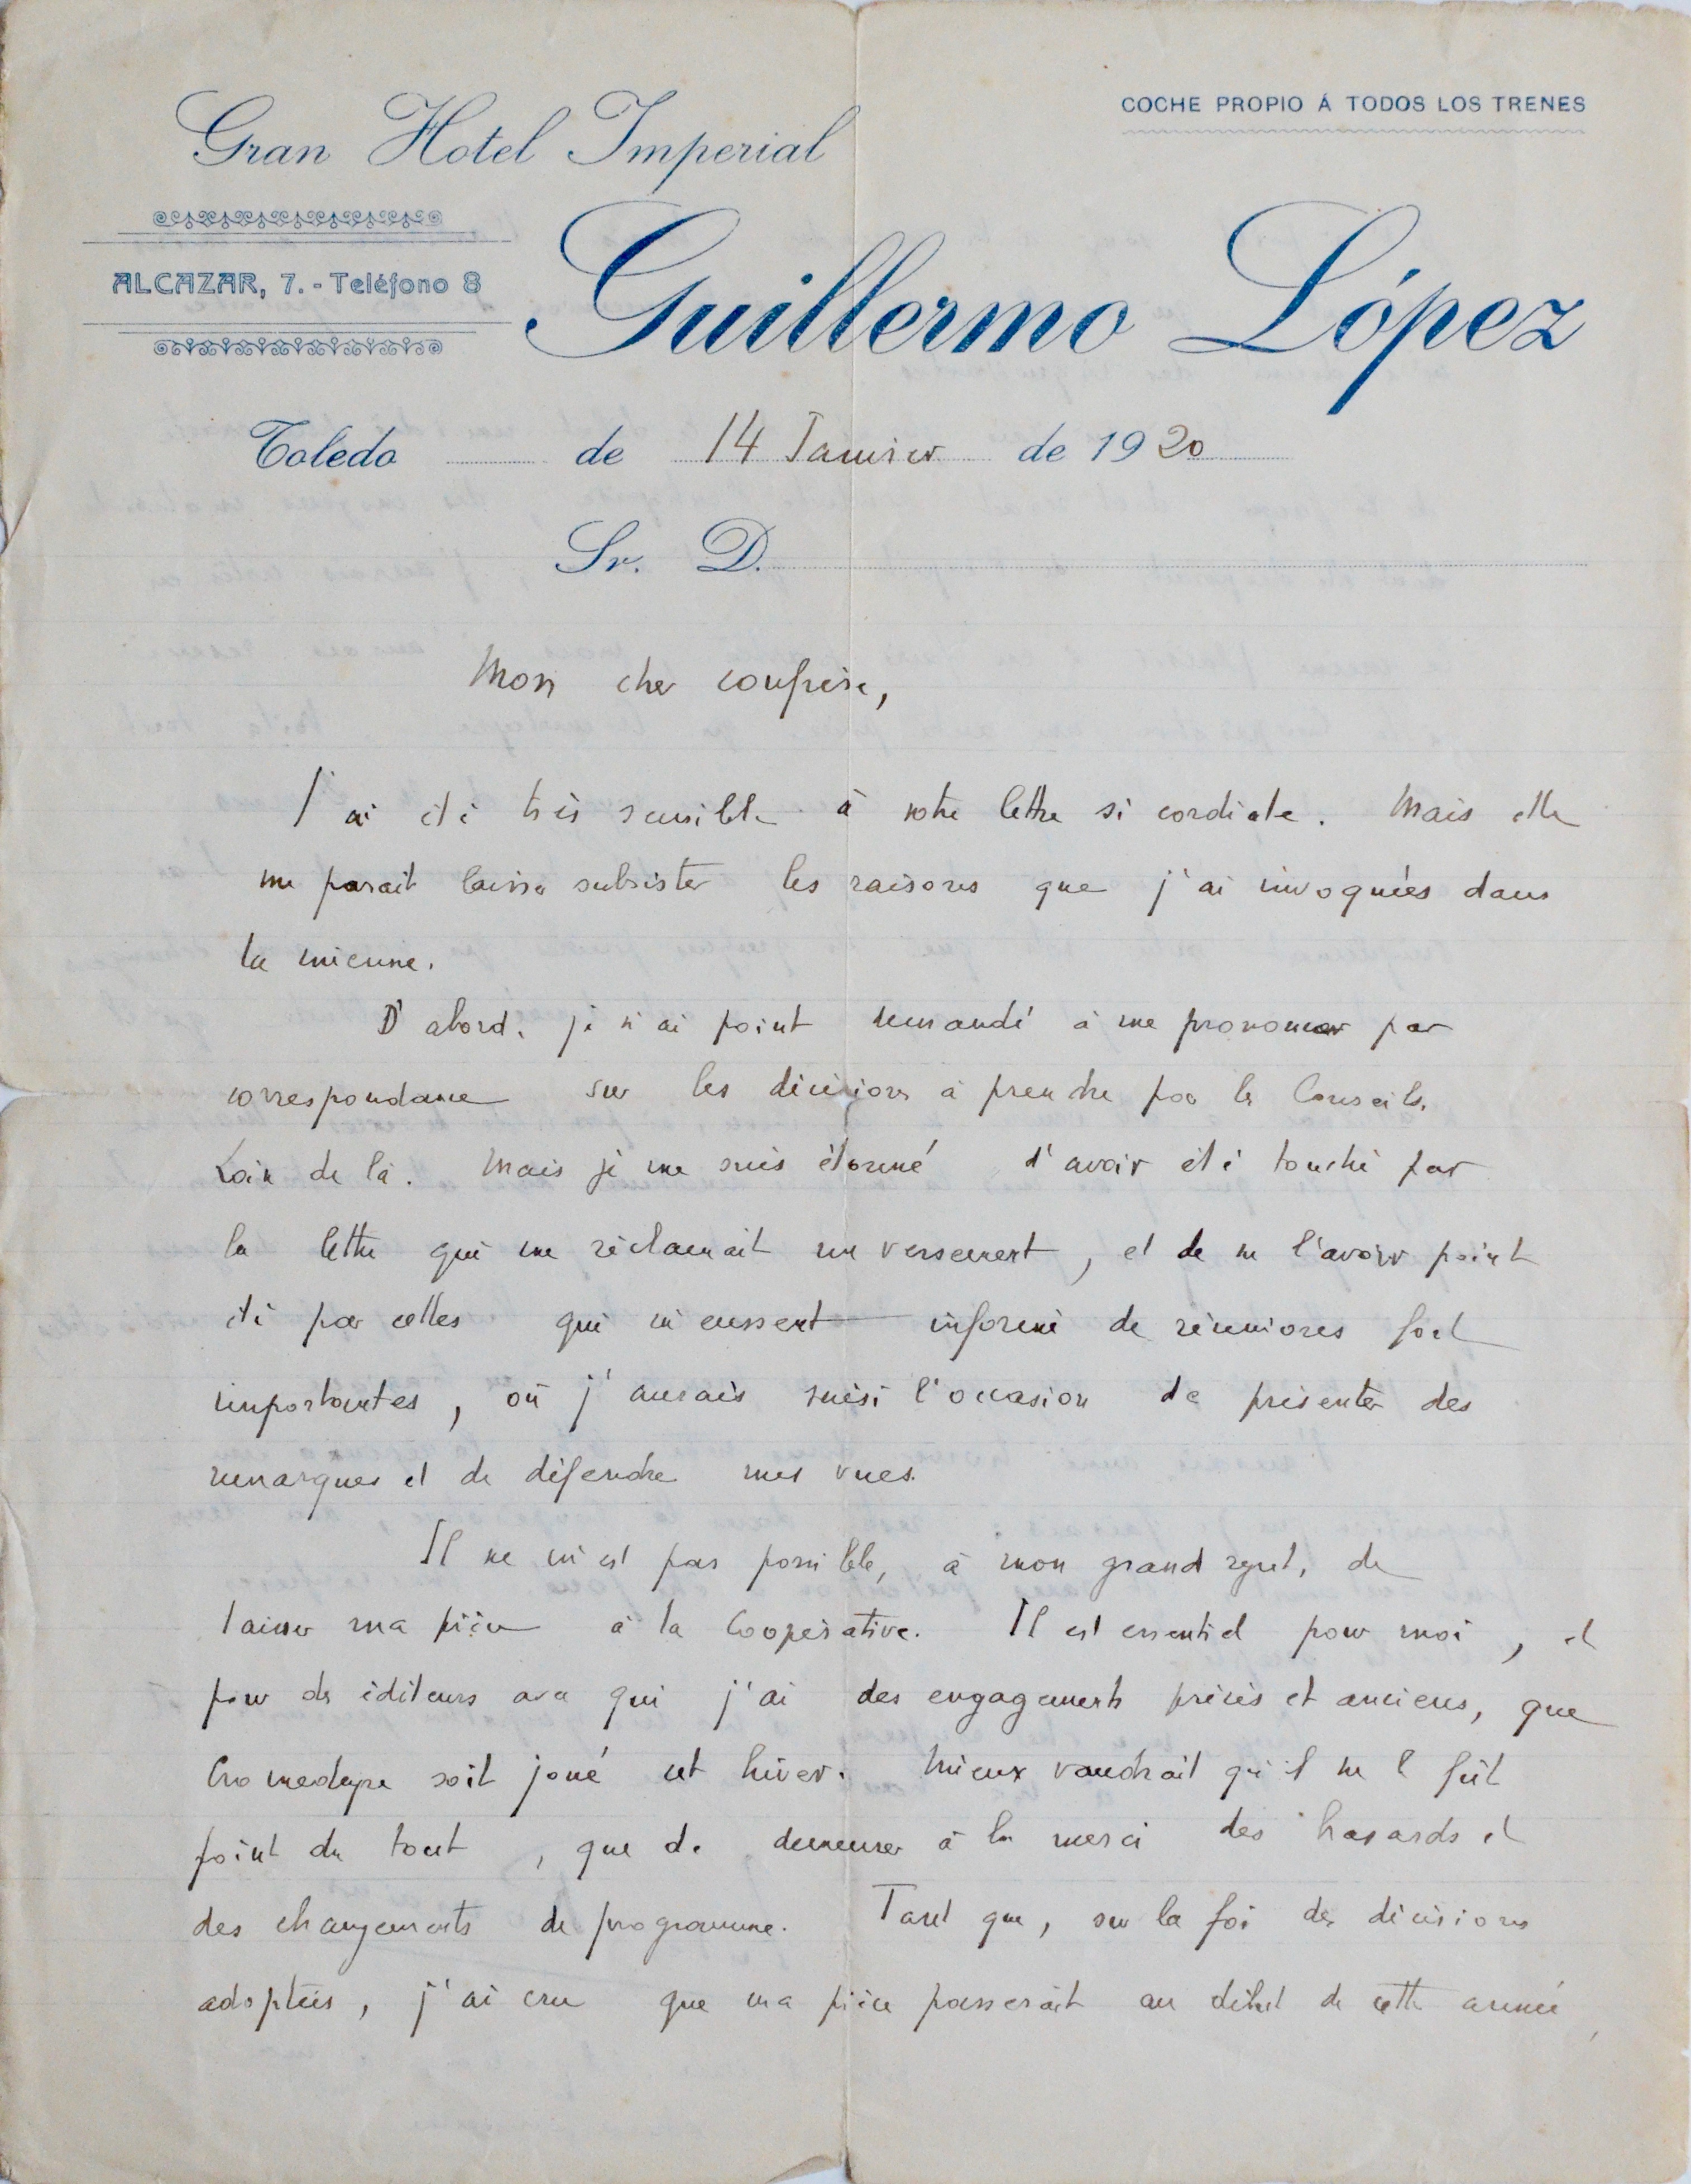 Gran Hotel Imperial
COCHE PROPIO Á TODOS LOS TRENES
ALCAZAR, 7. - Teléfono 8
Guillermo López
Toledo de 14 Janvier de 1920
Sr. D.
Mon cher confrère,
J'ai été très sensible à votre lettre si cordiale. Mais elle
me parait laisser subsister les raisons que j'ai invoquées dans
la mienne.
D'abord, je n'ai point demandé à me prononcer par
correspondance sur les décisions à prendre par les Conseils.
Loin de là. Mais je me suis étonné d'avoir été touché par
la lettre qui me réclamait un versement, et de ne l'avoir point
été par celles qui m'eussent informé de réunions fort
importantes, où j'aurais saisi l'occasion de présenter des
remarques et de défendre mes vues.
Il ne m'est pas possible, à mon grand regret, de
laisser ma pièce à la Coopérative. Il est essentiel pour moi, et
pour des éditeurs avec qui j'ai des engagements précis et anciens, que
Cromedeyre soit joué cet hiver. Mieux vaudrait qu'il ne le fût
point du tout, que de demeurer à la merci des hasards et
des changements de programme. Tant que, sur la foi des décisions
adoptées, j'ai cru que ma pièce passerait au début de cette année,